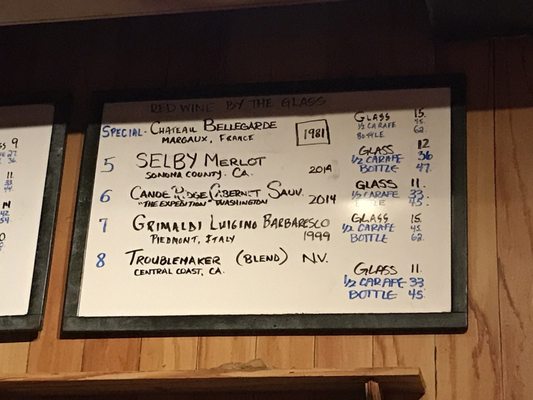 RED WINE BY THE GLASS
SPECIAL- CHATEAU BELLEGARDE 1981 GLASS 15.
MARGAUX, FRANCE ½ CARAFE 45.
BOTTLE 62.
5 SELBY MERLOT GLASS 12
SONOMA COUNTY. CA. 2014 ½ CARAFE 36
BOTTLE 47.
6 CANOE RIDGE CABERNET SAUV. GLASS 11.
"THE EXPEDITION" WASHINGTON 2014 ½ CARAFE 33
45.
7 GRIMALDI LUIGINO BARBARESCO GLASS 15
PIEDMONT, ITALY 1999 ½ CARAFE 45.
BOTTLE 62.
8 TROUBLEMAKER (BLEND) NV. GLASS 11.
CENTRAL COAST, CA. ½ CARAFE 33
BOTTLE 45.
S 9
11